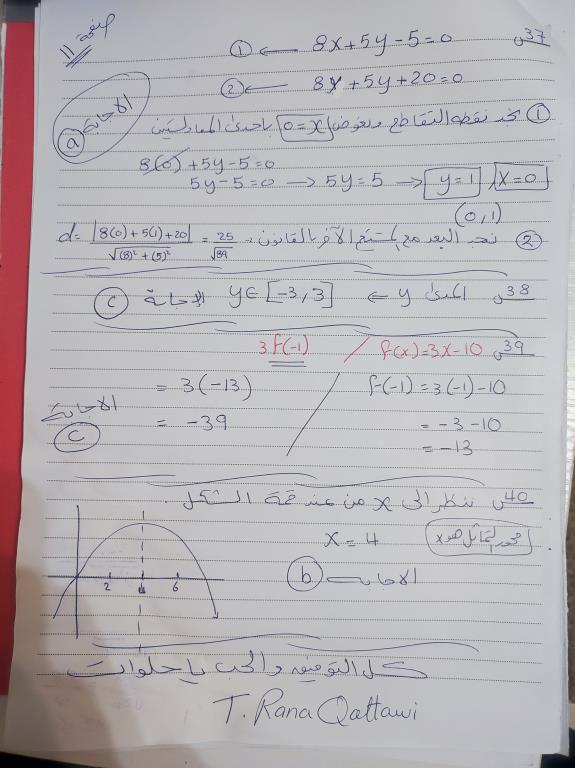 صفحة 11
س37 8x+5y-5=0 ← ①
8x+5y+20=0 ← ②
① نجد نقطة التقاطع ونعوض x=0 باحدى المعادلتين
الاجابة ⓐ
8(0)+5y-5=0
5y-5=0 → 5y=5 → y=1 / x=0
(0,1)
② نجد البعد مع المستقيم الآخر بالقانون. d= |8(0)+5(1)+20| / √(8)²+(5)² = 25/√89
س38 المدى y ← y∈[-3,3] الإجابة ⓒ
س39 f(x)=3x-10 / 3f(-1)
f(-1)=3(-1)-10 = 3(-13)
= -3-10 = -39
= -13
الاجابة ⓒ
س40 ننظر الى x من عند قمة الشكل.
محور التماثل هو x x=4
الاجابة ⓑ
2 4 6
كل التوفيق والحب يا حلوات
T. Rana Qattawi